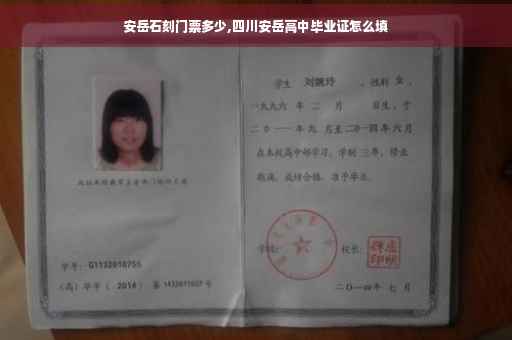 安岳石刻门票多少,四川安岳高中毕业证怎么填
学生 刘婉玲 ，性别 女 ，
一九九六 年 二 月 日生，于
二〇一一 年 九 月至 二〇一四 年 六 月
在本校高中部学习，学制 三年，修业
期满，成绩合格，准予毕业。
学校： 校长：
二〇一四年 七 月
学号：G1132010755
（高）毕字（ 2014 ）第 1432011027 号